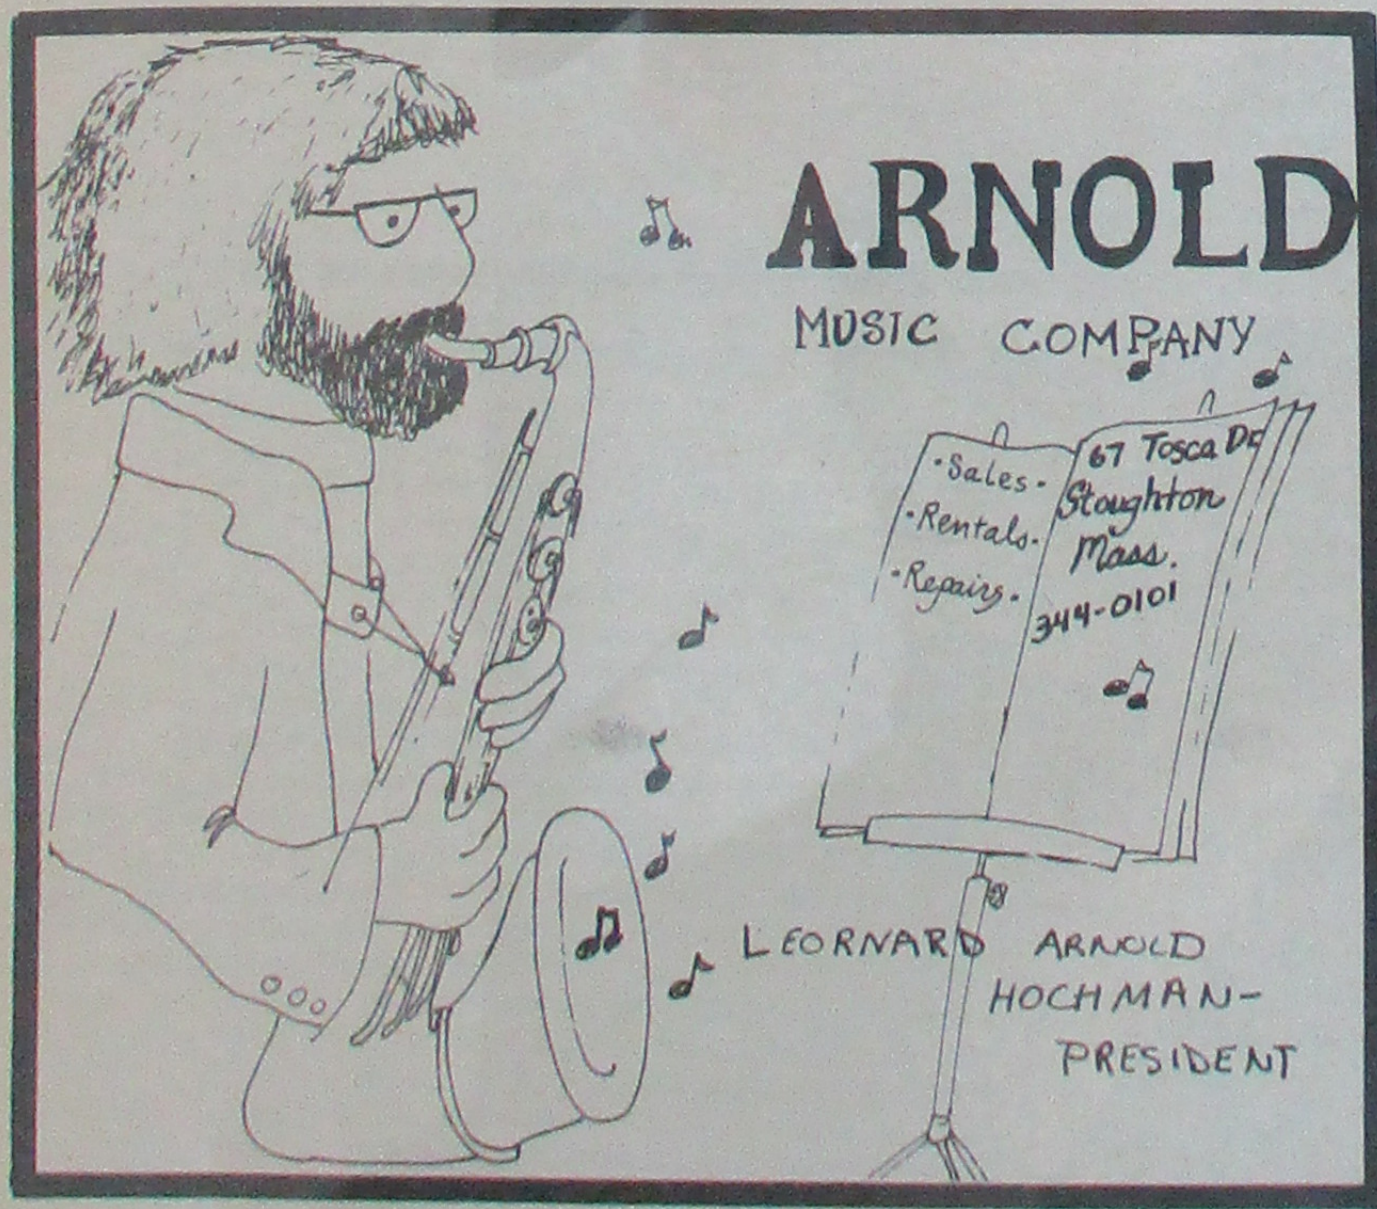 ARNOLD
MUSIC COMPANY
·Sales·
·Rentals·
·Repairs·
67 Tosca Dr
Stoughton
Mass.
344-0101
LEORNARD ARNOLD
HOCHMAN-
PRESIDENT